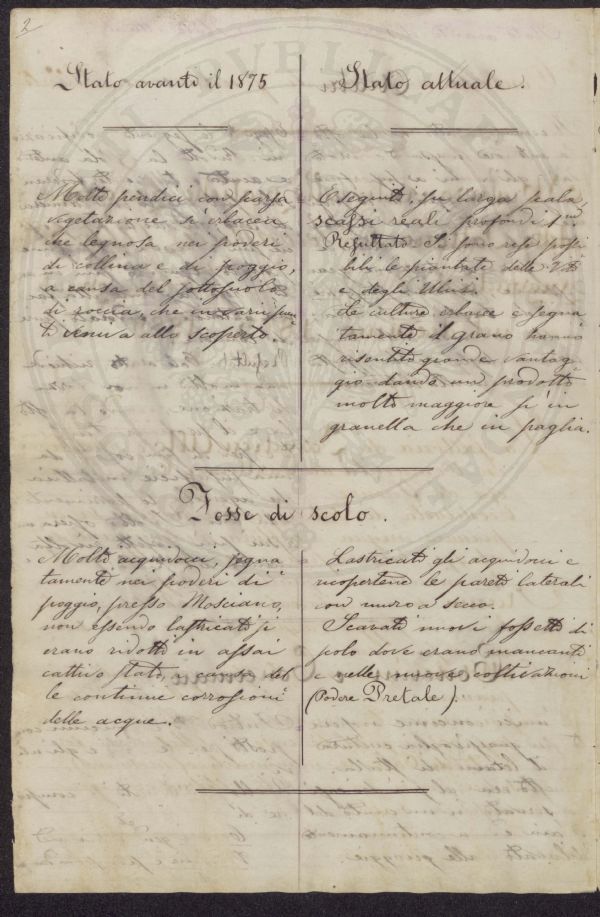 2
Stato avanti il 1875
Molte pendici con scarsa
vegetazione sì erbacea
che legnosa nei poderi
di collina e di poggio,
a causa del sottosuolo
di roccia, che in varii pun
ti veniva allo scoperto.
Stato attuale.
Eseguiti, su larga scala,
scassi reali profondi 1m.
Resultato. Si sono rese possi
bili le piantate delle Viti
e degli Ulivi.
Le culture erbacee e segna
tamente il grano hanno
risentito grande vantag
gio dando un prodotto
molto maggiore sì in
granella che in paglia.
Fosse di scolo.
Molti acquidocci, segna
tamente nei poderi di
poggio, presso Mosciano,
non essendo lastricati si
erano ridotti in assai
cattivo stato, a causa del
le continue corrosioni
delle acque.
Lastricati gli acquidocci e
ricopertene le pareti laterali
con muro a secco.
Scavati nuovi fossetti di
scolo dove erano mancanti
e nelle nuove coltivazioni
(Podere Pretale).